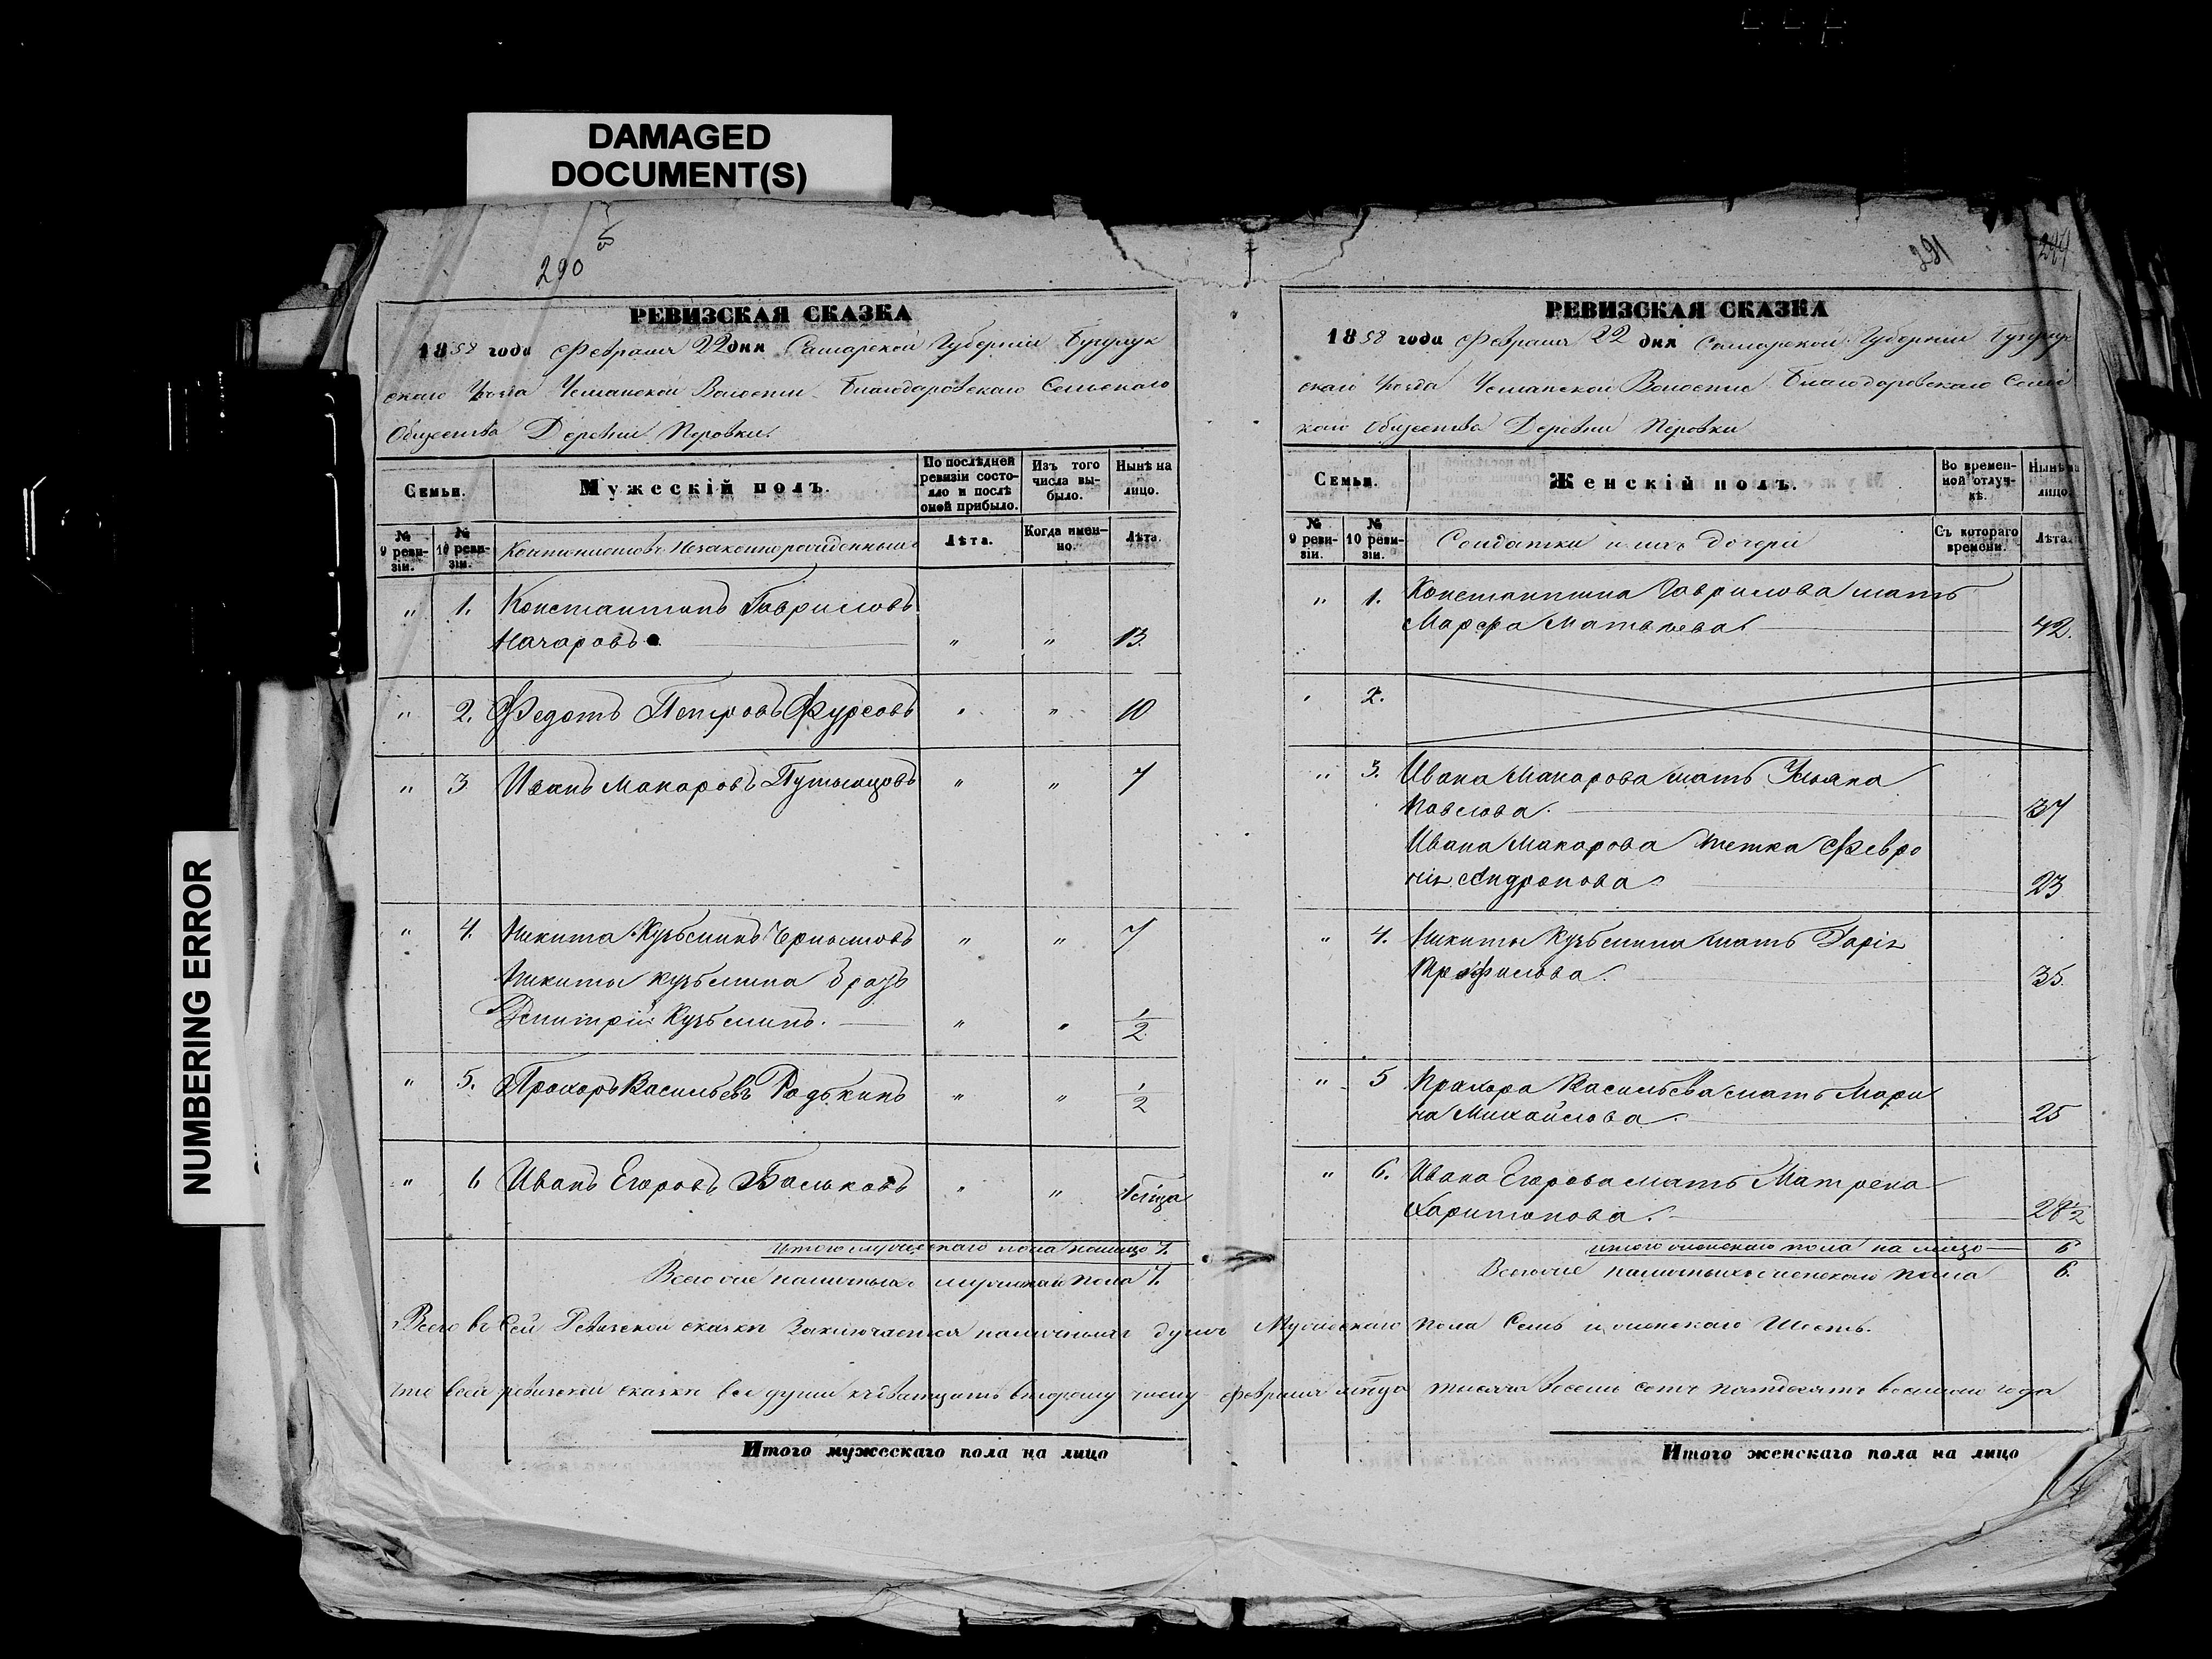 DAMAGED
DOCUMENT(S)
NUMBERING ERROR
290
РЕВИЗСКАЯ СКАЗКА
1858 года Февраля 22 дня Самарской Губернии Бугурук
скаго Уезда Усманской Волости Благодаровскаго Сельскаго
Общества Деревни Перовки.
Семьи.
Мужескій полъ.
По послѣдней ревизіи состояло и послѣ оной прибыло.
Изъ того числа выбыло.
Нынѣ на лицо.
№ 9 ревизіи.
№ 10 ревизіи.
Кантонистовъ Незаконнорожденныхъ
Лѣта.
Когда именно.
Лѣта.
" 1. Константинъ Гавриловъ
Начаровъ " " 13.
" 2. Федотъ Петровъ Фурсовъ " " 10
" 3 Иванъ Макаровъ " " 7
" 4. Никита Кузьминъ " " 7
Никиты Кузьмина братъ
Дмитрій Кузьминъ. " " 1/2
" 5. Прохоръ Васильевъ Радькинъ " " 1/2
" 6 Иванъ Егоровъ " "
Итого мужескаго пола налицо 7.
Всего наличныхъ мужескаго пола 7.
291
РЕВИЗСКАЯ СКАЗКА
1858 года Февраля 22 дня Самарской Губернии Бугурук
скаго Уезда Усманской Волости Благодаровскаго Сельс
каго Общества Деревни Перовки
Семьи.
Женскій полъ.
Во временной отлучкѣ.
Нынѣ на лицо.
№ 9 ревизіи.
№ 10 ревизіи.
Солдатки и ихъ дочери
Съ котораго времени.
Лѣта.
" 1. Константина Гаврилова мать
Марфа Матвѣева. 42.
" 2.
" 3. Ивана Макарова мать Ульяна
Павлова. 37
Ивана Макарова тетка Февро
нія Андронова. 23
" 4. Никиты Кузьмина мать Дарія
Трофилова. 35.
" 5 Прохора Васильева мать Мари
на Михайлова. 25
" 6. Ивана Егорова мать Матрена
Харитонова. 28 1/2
итого женскаго пола на лицо 6
наличныхъ женскаго пола 6.
Всего въ сей Ревизской сказкѣ заключается наличныхъ душъ Мужескаго пола Семь и женскаго Шесть.
ревизской сказкѣ все души къ двадцать второму числу февраля мѣсяца тысяча восемь сотъ пятдесятъ восьмаго года
Итого мужескаго пола на лицо
Итого женскаго пола на лицо